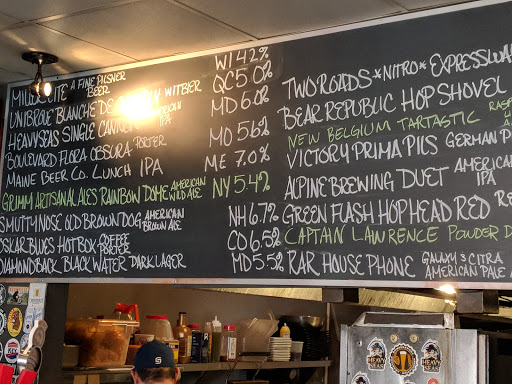 MILLER LITE A FINE PILSNER BEER WI 4.2%
UNIBROUE BLANCHE DE WITBIER QC 5.0%
HEAVY SEAS SINGLE CANNON AMERICAN IPA MD 6.0%
BOULEVARD FLORA OBSURA PORTER MO 5.6%
MAINE BEER CO. LUNCH IPA ME 7.0%
GRIMM ARTISANAL ALES RAINBOW DOME AMERICAN WILD ALE NY 5.4%
SMUTTYNOSE OLD BROWN DOG AMERICAN BROWN ALE NH 6.7%
OSKAR BLUES HOTBOX COFFEE PORTER CO 6.5%
DIAMONDBACK BLACK WATER DARK LAGER MD 5.5%
TWO ROADS *NITRO* EXPRESSWA
BEAR REPUBLIC HOP SHOVEL
NEW BELGIUM TARTASTIC RASP
VICTORY PRIMA PILS GERMAN P
ALPINE BREWING DUET AMERICA IPA
GREEN FLASH HOPHEAD RED RE
CAPTAIN LAWRENCE POWDER D
RAR HOUSE PHONE GALAXY & CITRA AMERICAN PALE A
HEAVY SEAS